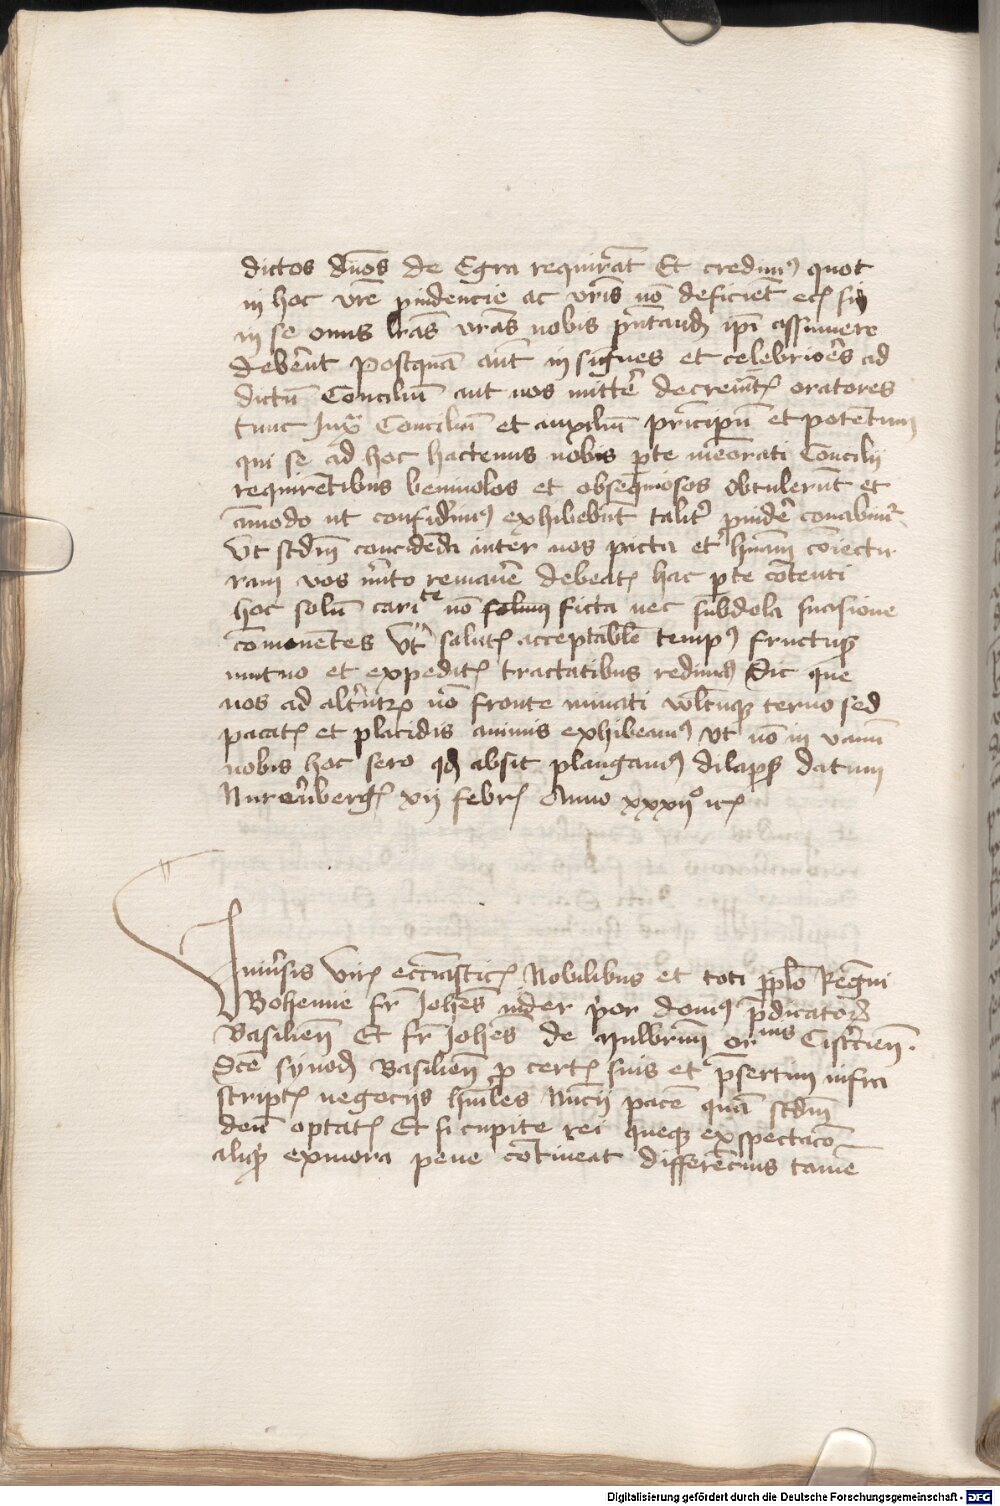 dictos dnōs de Egra requirāt Et credimꝰ quot
in hoc vrē prudencie ac vrīs nō deficiēt etc̄ sū
in se onus lrās vrās nobis pñtand ip̄i assumere
debēnt Postquā aut insignes et celebriores ad
dictū Conciliū aut nos mittē decreuit oratores
tunc Jux Conciliū et auxiliū principū et potentum
qui se ad hoc hactenus nobis pte memorati Concilij
requirētibus beniuolos et obsequiosos obtulerūt et
āmodo ut confidimꝰ exhibebūt talit prudē conabimur
Vt scdm concedēda inter nos picta et hmām coiectu
ram vos mīto remanē debeatꝭ hac pte cōtenti
hoc solū carite nō solum ficta nec subdola suasione
cōmonentes Vt salutꝭ acceptable tempꝰ fructuqꝫ
mutuo et expeditꝭ tractatibus redimꝰ Sic que
nos ad altrutrꝭ nō fronte minati vultuqꝫ teruo sed
pacatꝭ et placidis animis exhibeamꝰ vt nō in vanū
nobis hoc sero qd absit plangamꝰ dilapsꝫ datum
Nurenbergꝭ xij febrꝭ Anno xxxij° etc̄
Uniūsis Virꝭ eccīasticꝭ Nobilibus et toti pplō Regni
Bohemie fr̄ Johēs nider por domꝰ pdicatoꝝ
Basilien̄ Et fr̄ Johēs de Mulbrun̄ ornis Cistcien̄.
Scē synodꝭ Basilien̄ p certꝭ suis et psertim infra
scriptꝭ negocijs humiles Nuncij pacē quā scdm
deū optatꝭ Et si cupite rei queqꝫ exspectacō
aliqꝫ exmora pene cōtineat differētius tamē